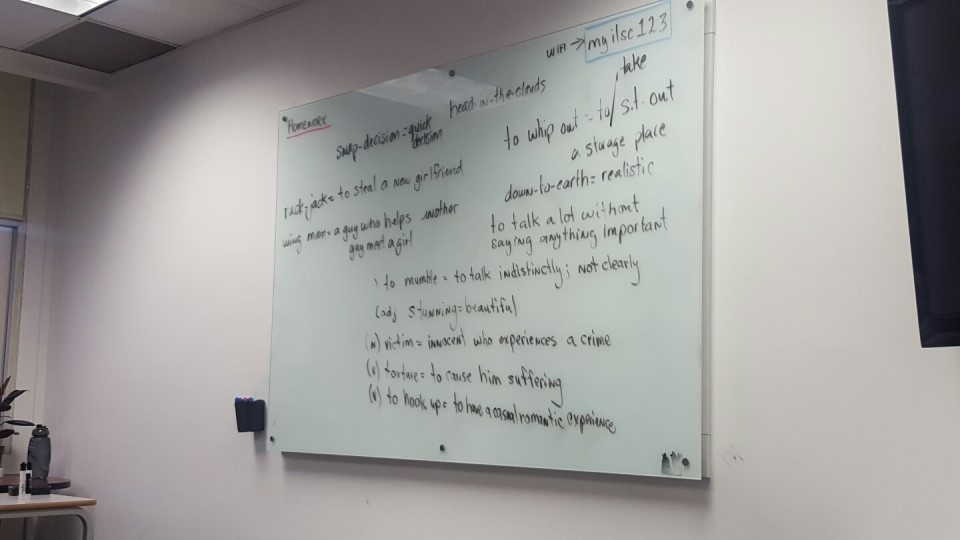 WIFI → myilsc123
Homework
head-in-the-clouds
take
snap-decision = quick
decision
to whip out = to / s.t. out
a storage place
jack = to steal a new girlfriend
down-to-earth = realistic
wing man = a guy who helps another
guy meet a girl
to talk a lot without
saying anything important
to mumble = to talk indistinctly; not clearly
(adj stunning = beautiful
(n) victim = innocent who experiences a crime
(v) torture = to cause him suffering
(v) to hook up = to have a casual romantic experience